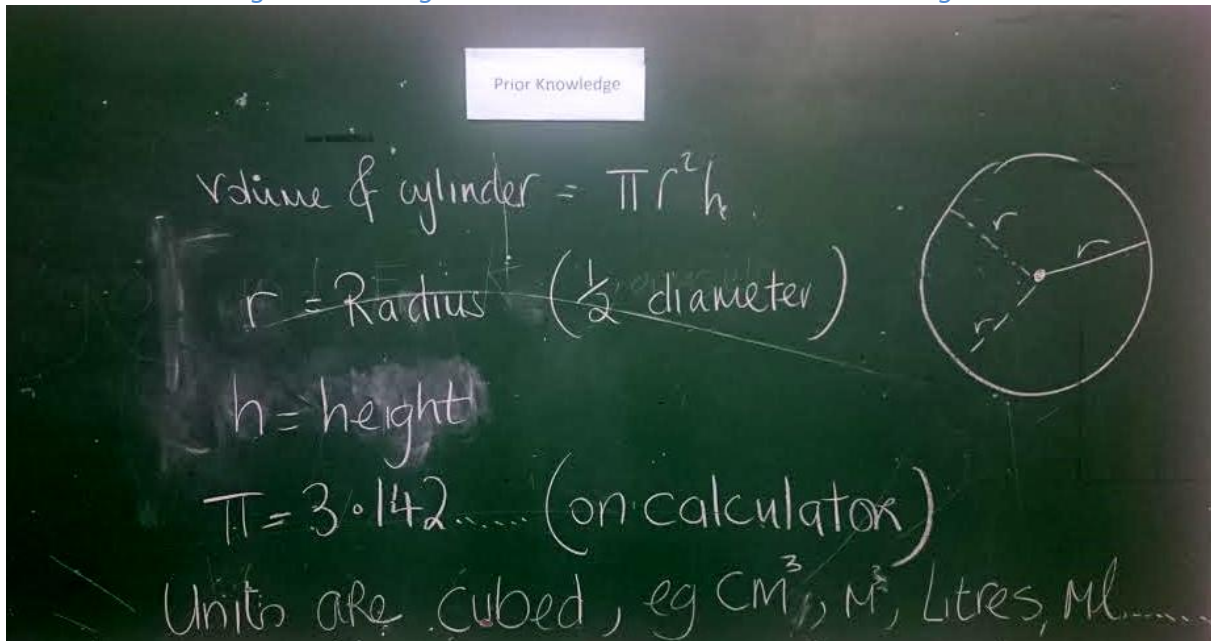 Prior Knowledge
Volume of cylinder = πr²h.
r = Radius (½ diameter)
h = height
π = 3.142...... (on calculator)
Units are cubed, eg cm³, M³, Litres, Ml.......
r
r
r